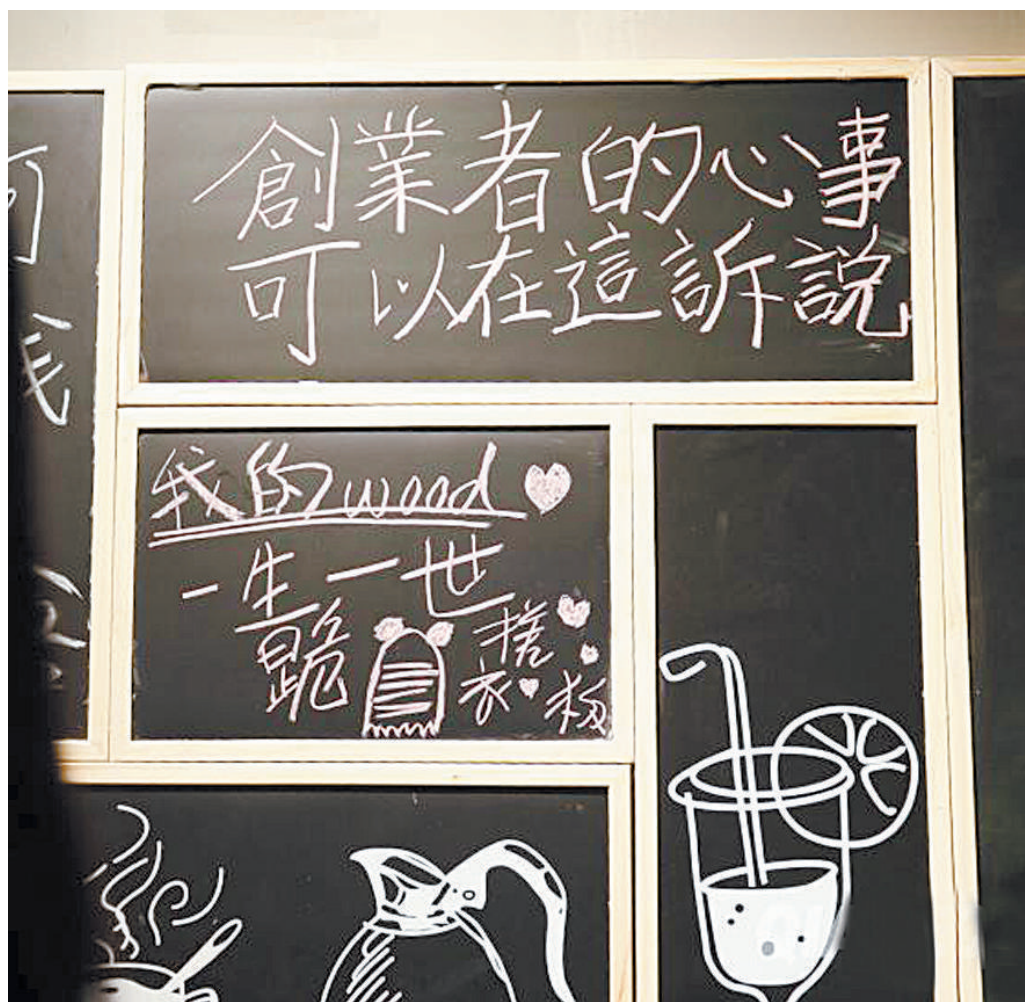 創業者的心事
可以在這訴説
我的wood
一生一世
跪搓
衣板